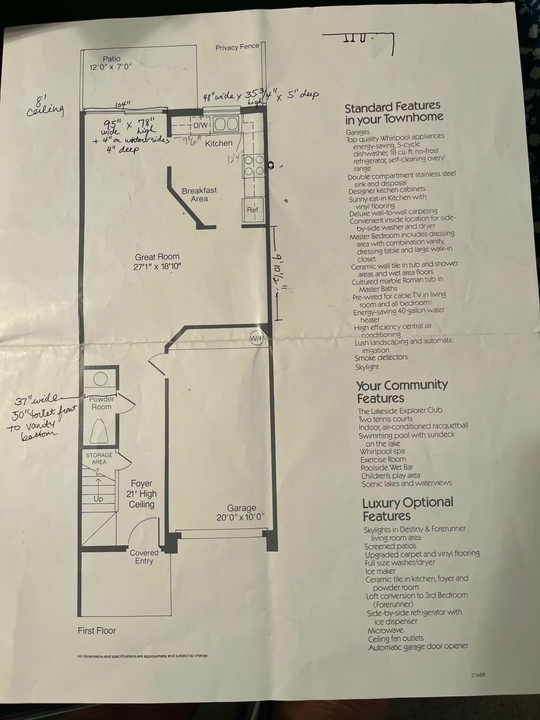 Patio
12'0" x 7'0"
Privacy Fence
8'
ceiling
104"
48" wide x 35 3/4" x 5" deep
high
95" x 78"
wide high
4" deep
D/W
Kitchen
Breakfast
Area
Ref.
Great Room
27'1" x 18'10"
9' 10 1/2"
W/H
37" wide
50" toilet front
to vanity
bottom
Powder
Room
STORAGE
AREA
Up
Foyer
21' High
Ceiling
Garage
20'0" x 10'0"
Covered
Entry
First Floor
All dimensions and specifications are approximate and subject to change.
Standard Features
in your Townhome
Garages
Top quality Whirlpool appliances
energy-saving, 5-cycle
dishwasher, 18 cu. ft. no-frost
refrigerator, self-cleaning oven/
range
Double compartment stainless steel
sink and disposal
Designer kitchen cabinets
Sunny eat-in Kitchen with
vinyl flooring
Deluxe wall-to-wall carpeting
Convenient inside location for side-
by-side washer and dryer
Master Bedroom includes dressing
area with combination vanity,
dressing table and large walk-in
closet
Ceramic wall tile in tub and shower
areas and wet area floors
Cultured marble Roman tub in
Master Baths
Pre-wired for cable TV in living
room and all bedrooms
Energy-saving 40 gallon water
heater
High efficiency central air
conditioning
Lush landscaping and automatic
irrigation
Smoke detectors
Skylight
Your Community
Features
The Lakeside Explorer Club
Two tennis courts
Indoor, air-conditioned racquetball
Swimming pool with sundeck
on the lake
Whirlpool spa
Exercise Room
Poolside Wet Bar
Children's play area
Scenic lakes and waterviews
Luxury Optional
Features
Skylights in Destiny & Forerunner
living room area
Screened patios
Upgraded carpet and vinyl flooring
Full size washer/dryer
Ice maker
Ceramic tile in kitchen, foyer and
powder room
Loft conversion to 3rd Bedroom
(Forerunner)
Side-by-side refrigerator with
ice dispenser
Microwave
Ceiling fan outlets
Automatic garage door opener
21688